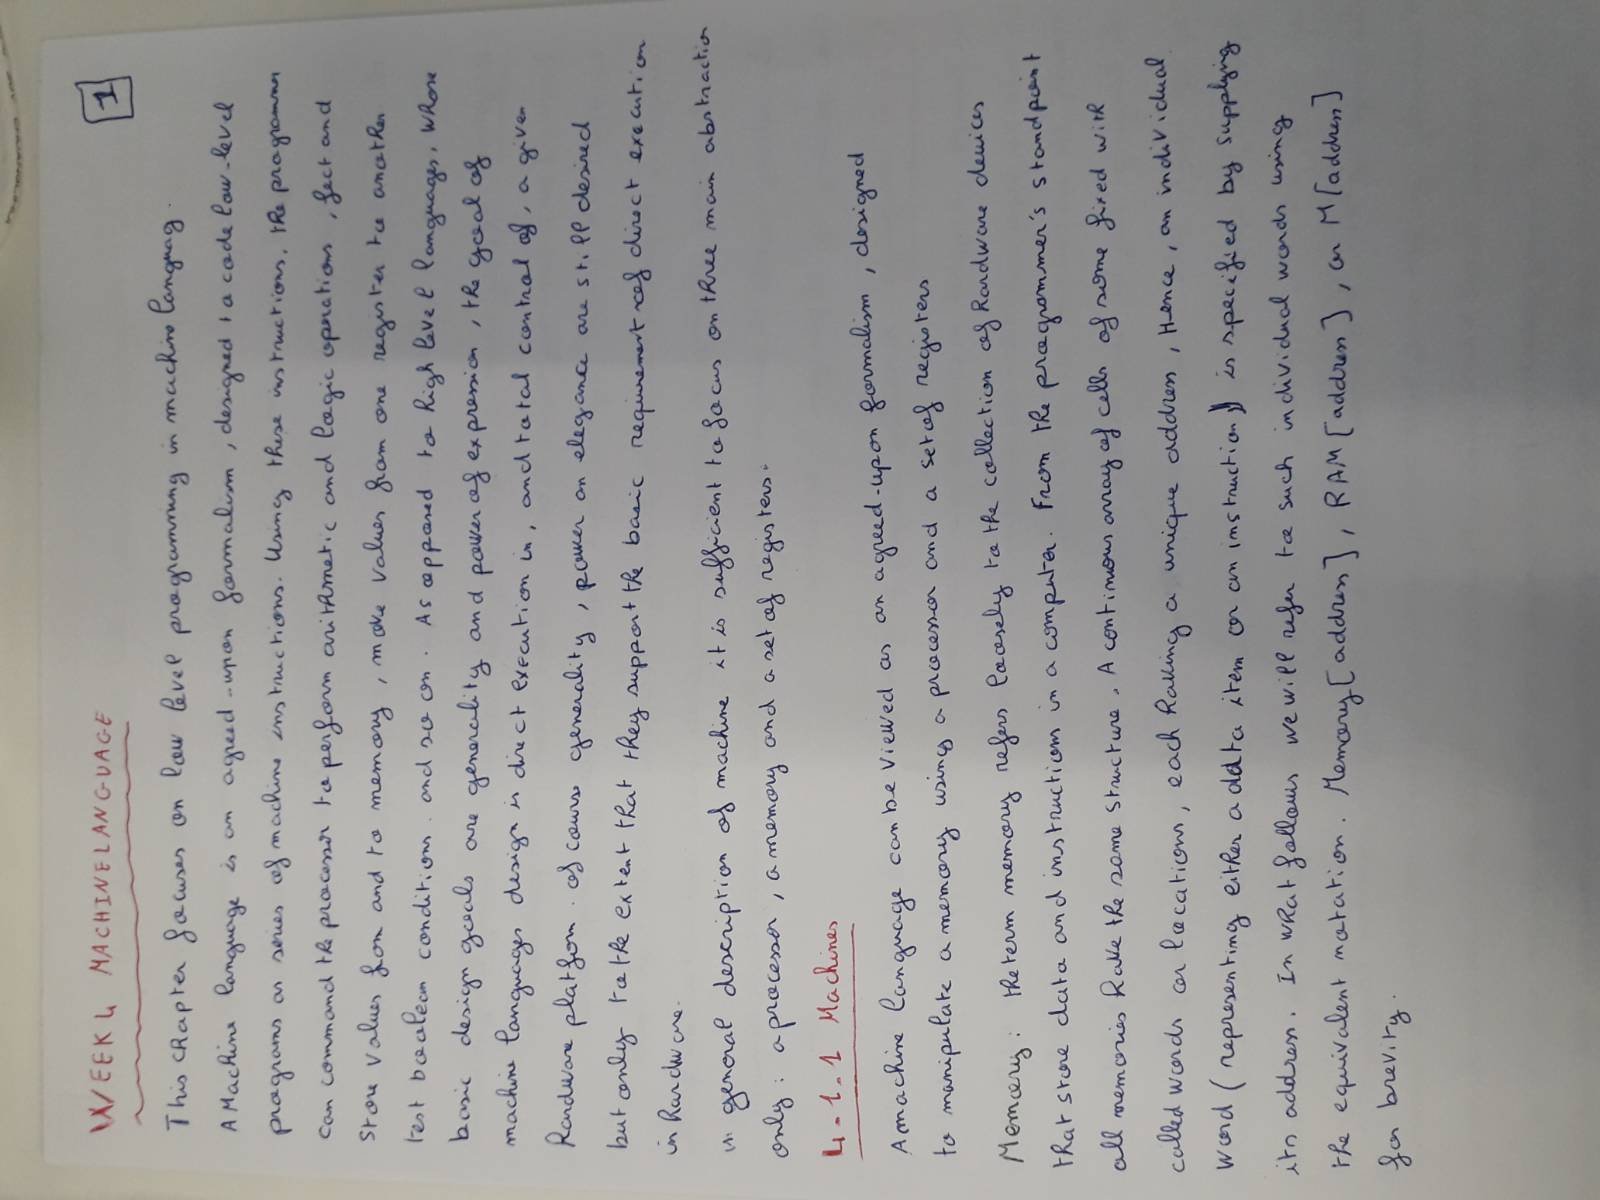 1
WEEK 4 MACHINE LANGUAGE
This chapter focuses on low level programming in machine languag.
A Machine language is an agreed-upon formalism, designed to code low-level
programs as series of machine instructions. Using these instructions, the programmer
can command the processor to perform arithmetic and logic operations, fect and
store values from and to memory, move values from one register to another
test boolean conditions. and so on. As opposed to high level languages, whose
basic design goals are generality and power of expression, the goal of
machine languages design is direct execution in, and total control of, a given
hardware platfom. of course generality, power an elegance are still desired
but only to the extent that they support the basic requirement of direct execution
in hardware.
in general description of machine it is sufficient to focus on three main abstraction
only: a processor, a memory and a set of registers.
4.1.1 Machines
A machine language can be viewed as an agreed-upon formalism, designed
to manipulate a memory using a processor and a set of registers
Memory: the term memory refers loosely to the collection of hardware devices
that store data and instruction in a computer. From the programmer's standpoint
all memories have the same structure. A continuous array of cells of some fixed with
called words or locations, each having a unique address, Hence, an individual
word (representing either a data item or an instruction) is specified by supplying
its address. In what follows we will refer to such individual words using
the equivalent notation. Memory[address], RAM[address], or M[address]
for brevity.